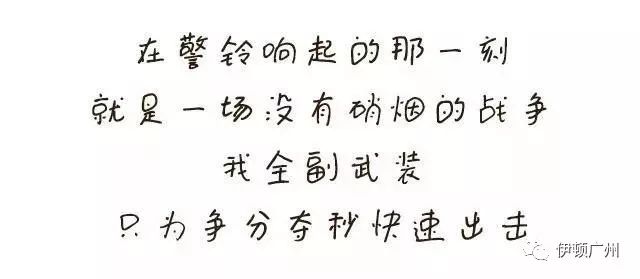 在警铃响起的那一刻
就是一场没有硝烟的战争
我全副武装
只为争分夺秒快速出击
伊顿广州